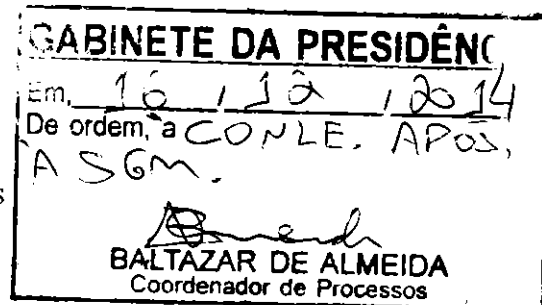 GABINETE DA PRESIDÊNC
Em, 16 / 12 / 2014
De ordem, a CONLE. APOS,
A SGM.
s
BALTAZAR DE ALMEIDA
Coordenador de Processos